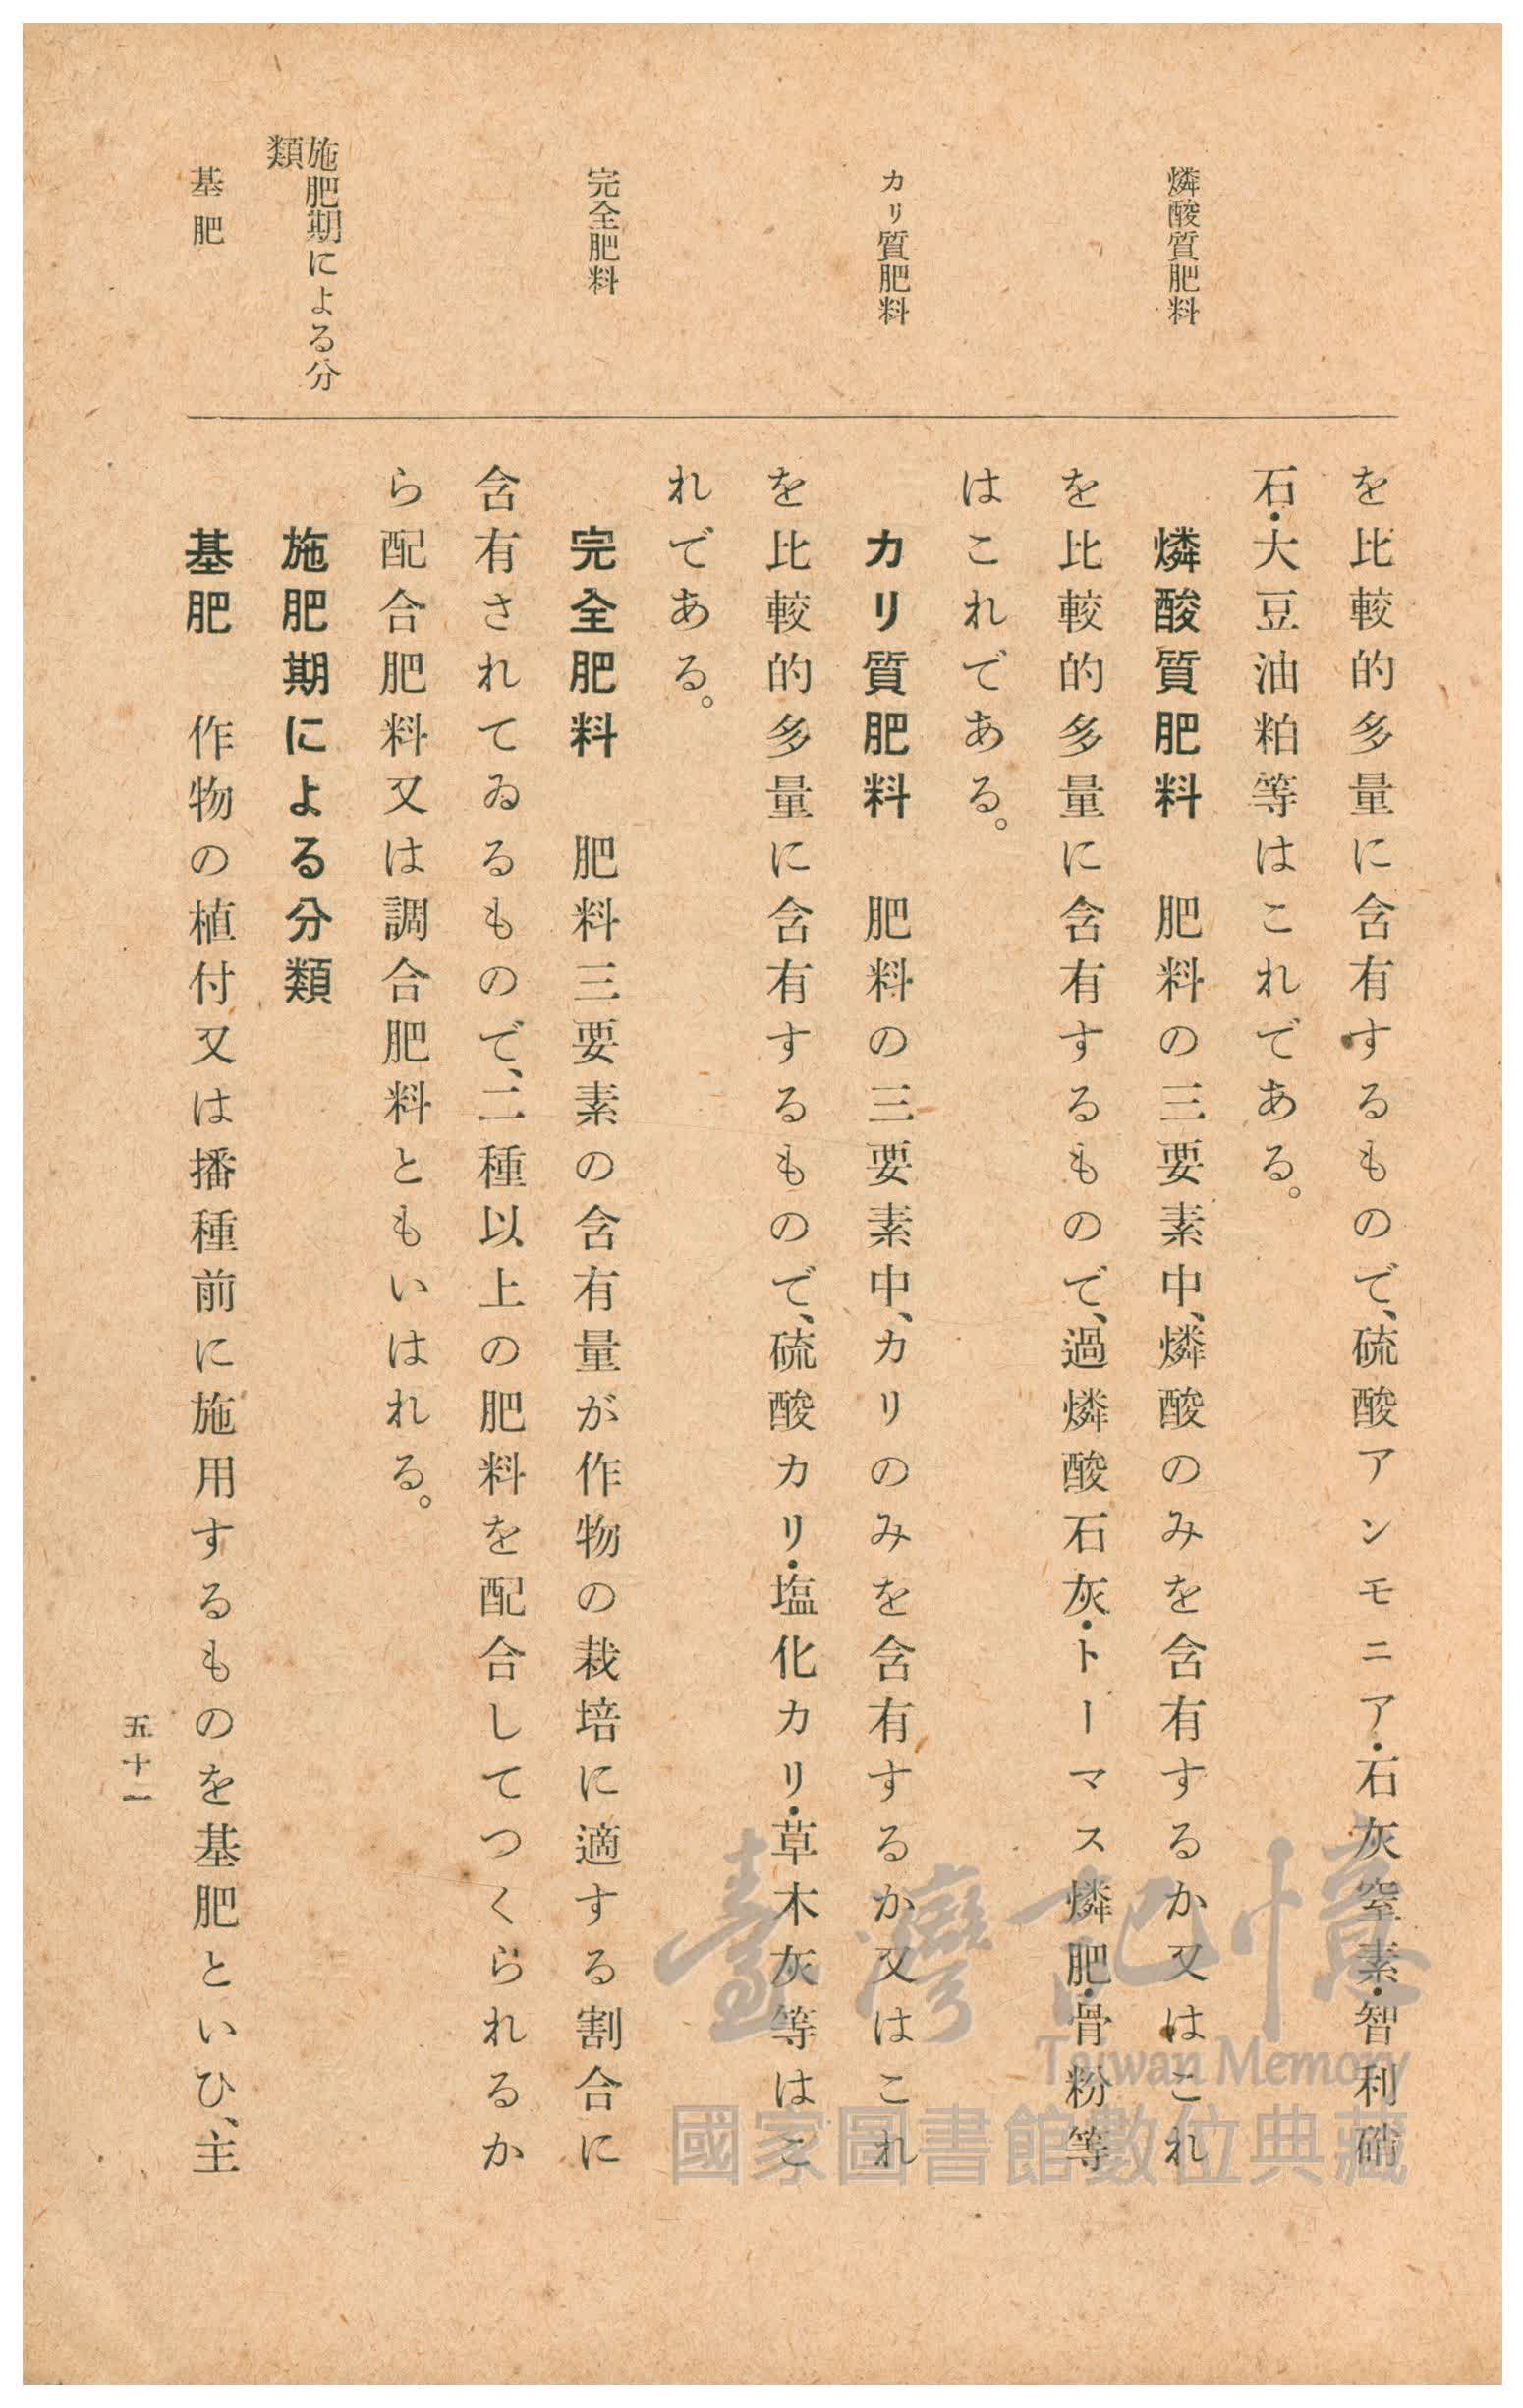 燐酸質肥料
カリ質肥料
完全肥料
施肥期による分
類
基肥
を比較的多量に含有するもので、硫酸アンモニア・石灰窒素・智利硝
石・大豆油粕等はこれである。
燐酸質肥料　肥料の三要素中、燐酸のみを含有するか又はこれ
を比較的多量に含有するもので、過燐酸石灰・トーマス燐肥・骨粉等
はこれである。
カリ質肥料　肥料の三要素中、カリのみを含有するか又はこれ
を比較的多量に含有するもので、硫酸カリ・塩化カリ・草木灰等はこ
れである。
完全肥料　肥料三要素の含有量が作物の栽培に適する割合に
含有されてゐるもので、二種以上の肥料を配合してつくられるか
ら配合肥料又は調合肥料ともいはれる。
施肥期による分類
基肥　作物の植付又は播種前に施用するものを基肥といひ、主
五十一
臺灣記憶
Taiwan Memory
國家圖書館數位典藏